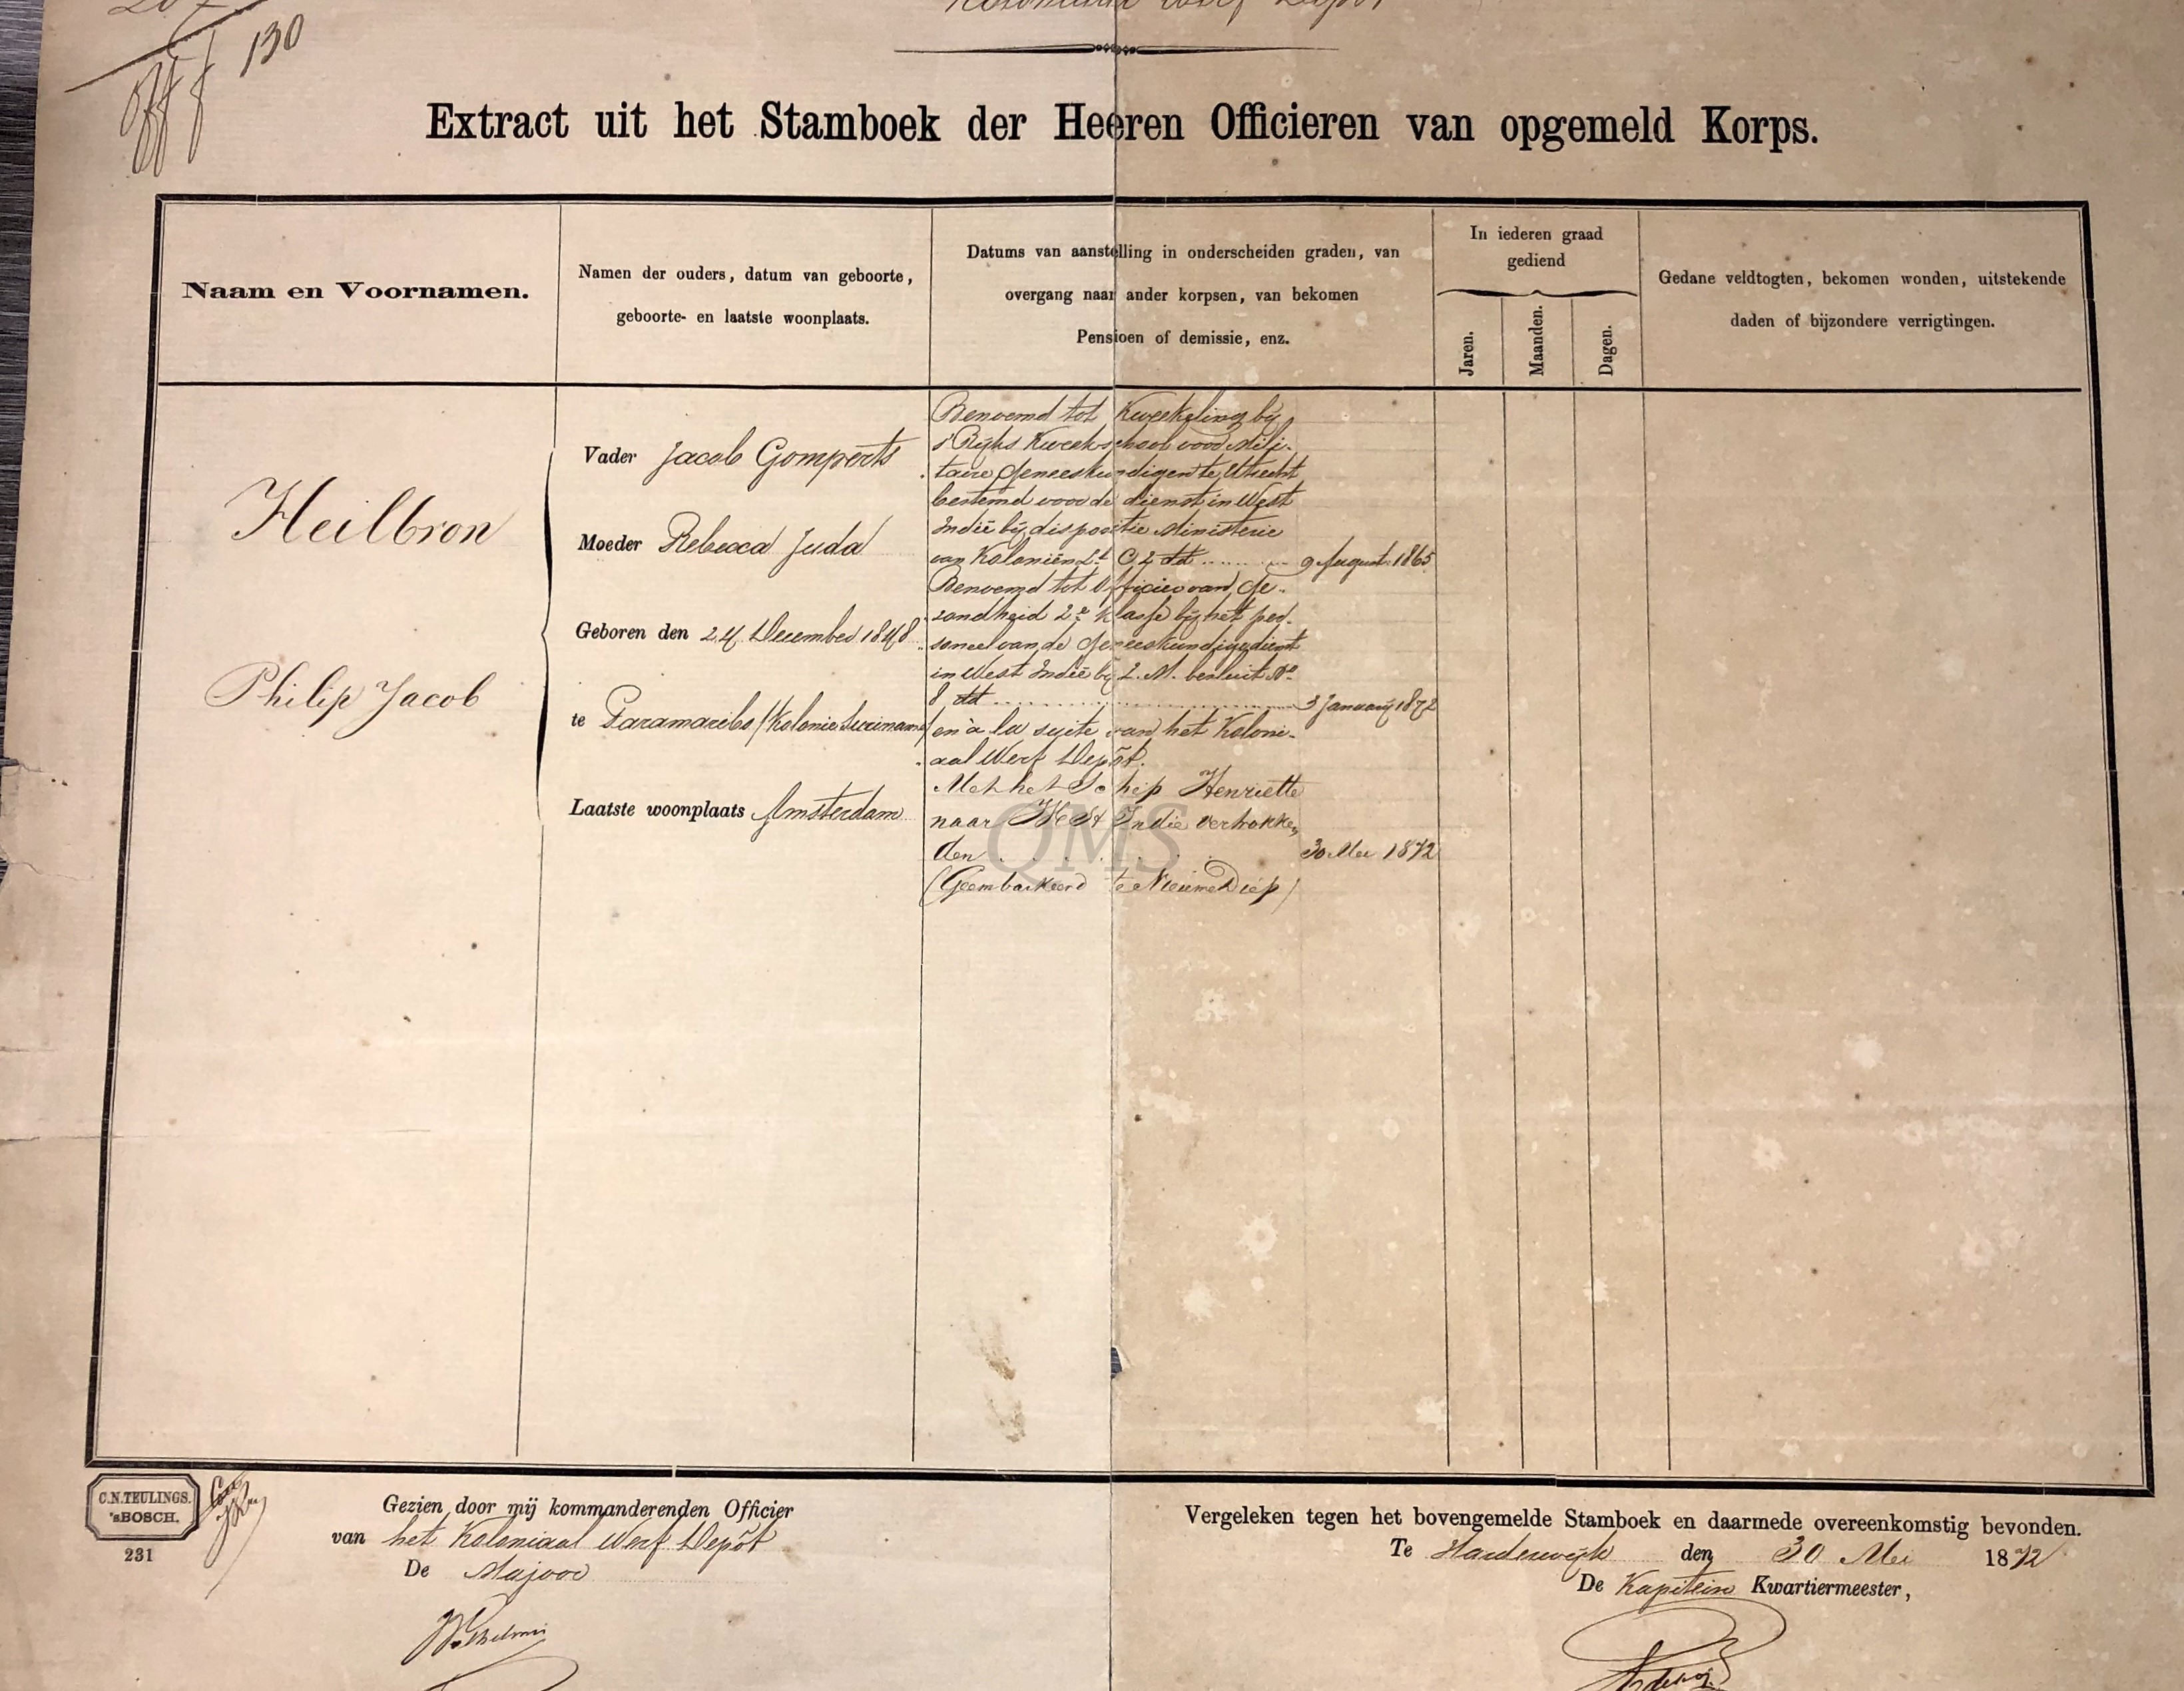 Koloniaal Werf Depôt
130
Extract uit het Stamboek der Heeren Officieren van opgemeld Korps.
Naam en Voornamen.
Namen der ouders, datum van geboorte,
geboorte- en laatste woonplaats.
Datums van aanstelling in onderscheiden graden, van
overgang naar ander korpsen, van bekomen
Pensioen of demissie, enz.
In iederen graad
gediend
Jaren.
Maanden.
Dagen.
Gedane veldtogten, bekomen wonden, uitstekende
daden of bijzondere verrigtingen.
Heilbron
Philip Jacob
Vader Jacob Gomperts
Moeder Rebecca Juda
Geboren den 24 December 1848
te Paramaribo (Kolonie Suriname)
Laatste woonplaats Amsterdam
Benoemd tot Kweekeling bij
's Rijks Kweekschool voor Mili-
taire Geneeskundigen te Utrecht
bestemd voor de dienst in West
Indië bij dispositie Ministerie
van Koloniën Lt C 2 dd ........ 9 August: 1865
Benoemd tot Officier van Ge-
zondheid 2e klasse bij het per-
soneel van de Geneeskundige dienst
in West Indië bij Z. M. besluit No
8 dd ........ 3 January 1872
en à la suite van het Koloni-
aal Werf Depôt.
Met het Schip Henriette
naar West Indie vertrokken
den . . . . . . 30 Mei 1872
(Geembarkeerd te Nieuwe Diep)
QMS
C.N. TEULINGS.
'sBOSCH.
231
Gezien door mij kommanderenden Officier
van het Koloniaal Werf Depôt
De Majoor
Vergeleken tegen het bovengemelde Stamboek en daarmede overeenkomstig bevonden.
Te Harderwijk den 30 Mei 1872
De Kapitein Kwartiermeester,